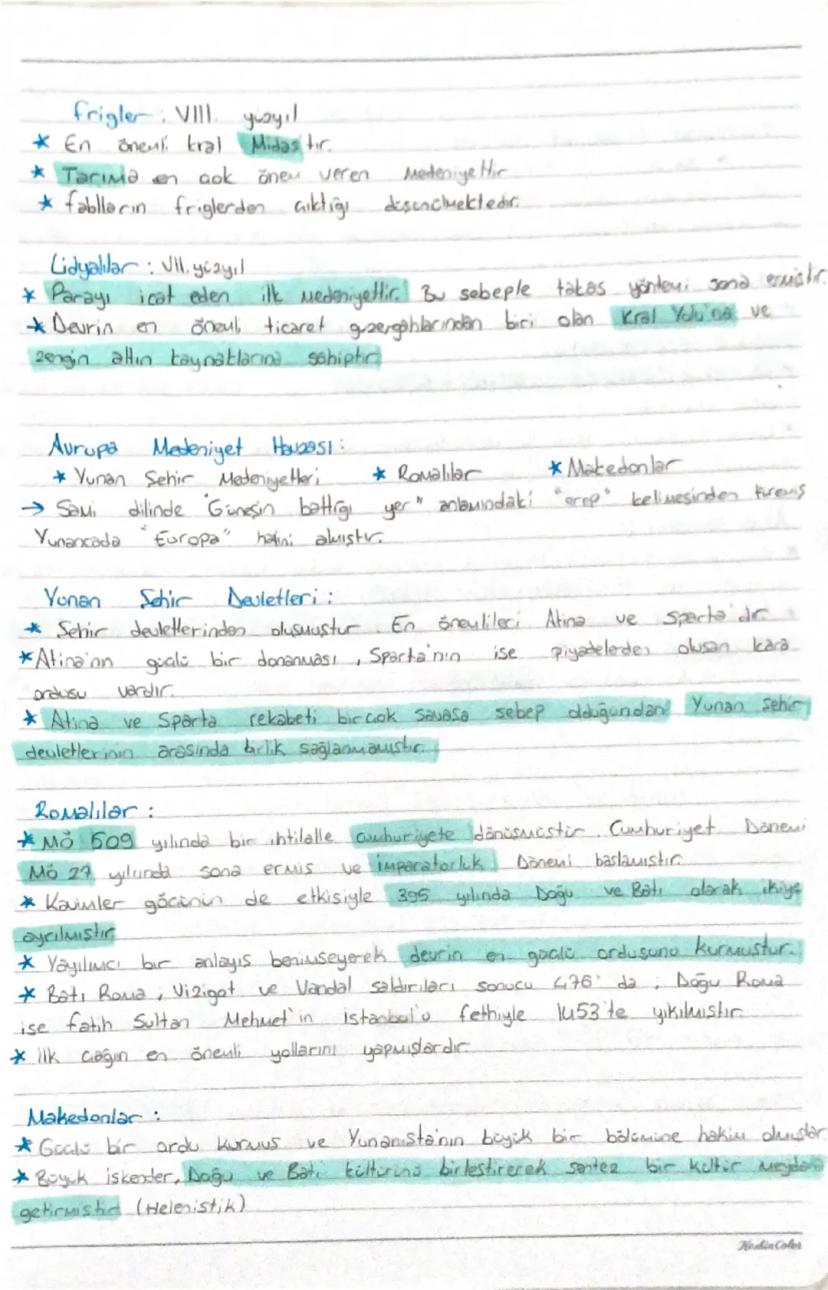 Frigler : VIII. yüzyıl
* En önemli kral Midas'tır.
* Tarıma en çok önem veren medeniyettir
* fablların friglerden çıktığı düşünülmektedir.
Lidyalılar : VII. yüzyıl
* Parayı icat eden ilk medeniyettir. Bu sebeple takas yöntemi sona ermiştir.
* Devrin en önemli ticaret güzergahlarından biri olan Kral Yolu'na ve
zengin altın kaynaklarına sahiptir
Avrupa Medeniyet Havzası :
* Yunan Şehir Medeniyetleri * Romalılar * Makedonlar
→ Sami dilinde "Güneşin battığı yer" anlamındaki "erep" kelimesinden türemiş
Yunancada "Europa" halini almıştır.
Yunan Şehir Devletleri :
* Şehir devletlerinden oluşmuştur. En önemlileri Atina ve Sparta'dır
* Atina'nın güçlü bir donanması, Sparta'nın ise piyadelerden oluşan kara
ordusu vardır.
* Atina ve Sparta rekabeti birçok savaşa sebep olduğundan Yunan şehir
devletlerinin arasında birlik sağlanmamıştır.
Romalılar :
* MÖ 509 yılında bir ihtilalle cumhuriyete dönüşmüştür. Cumhuriyet Dönemi
MÖ 27 yılında sona ermiş ve imparatorluk Dönemi başlamıştır.
* Kavimler göçünün de etkisiyle 395 yılında Doğu ve Batı olarak ikiye
ayrılmıştır
* Yayılımcı bir anlayış benimseyerek devrin en güçlü ordusunu kurmuştur.
* Batı Roma, Vizigot ve Vandal saldırıları sonucu 476'da ; Doğu Roma
ise fatih Sultan Mehmet'in istanbul'u fethiyle 1453'te yıkılmıştır
* ilk çağın en önemli yollarını yapmışlardır.
Makedonlar :
* Güçlü bir ordu kurmuş ve Yunanista'nın büyük bir bölümüne hakim olmuşlar
* Büyük iskender, Doğu ve Batı kültürünü birleştirerek sentez bir kültür meydana
getirmiştir (Helenistik)